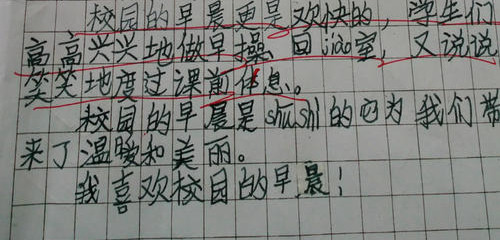 校园的早晨更是欢快的，学生们
高高兴兴地做早操，回jiao室，又说说
笑笑地度过课前休息。
校园的早晨是shūshì的它为我们带
来了温暖和美丽。
我喜欢校园的早晨！